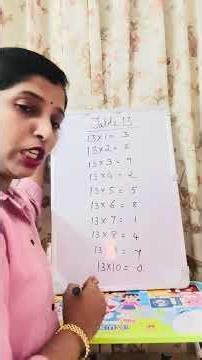 Table 13
13×1= 3
13×2= 6
13×3= 9
13×4= 2
13×5= 5
13×6= 8
13×7= 1
13×8= 4
13 = 7
13×10= 0